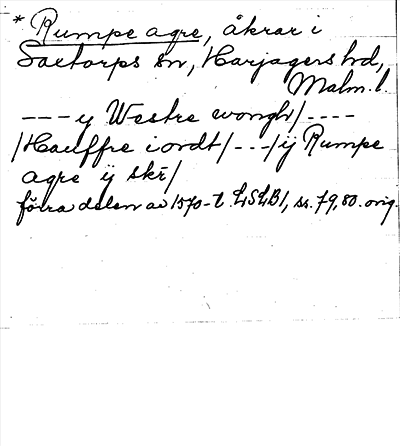 * Rumpe agre, åkrar i
Saxtorps sn, Harjagers hd,
Malm. l.
--- y Westre wongh/----
/Hauffre iordt/---/ij Rumpe
agre ÿ skr/
förra delen av 1570-t. LSLB1, ss. 79, 80. orig.